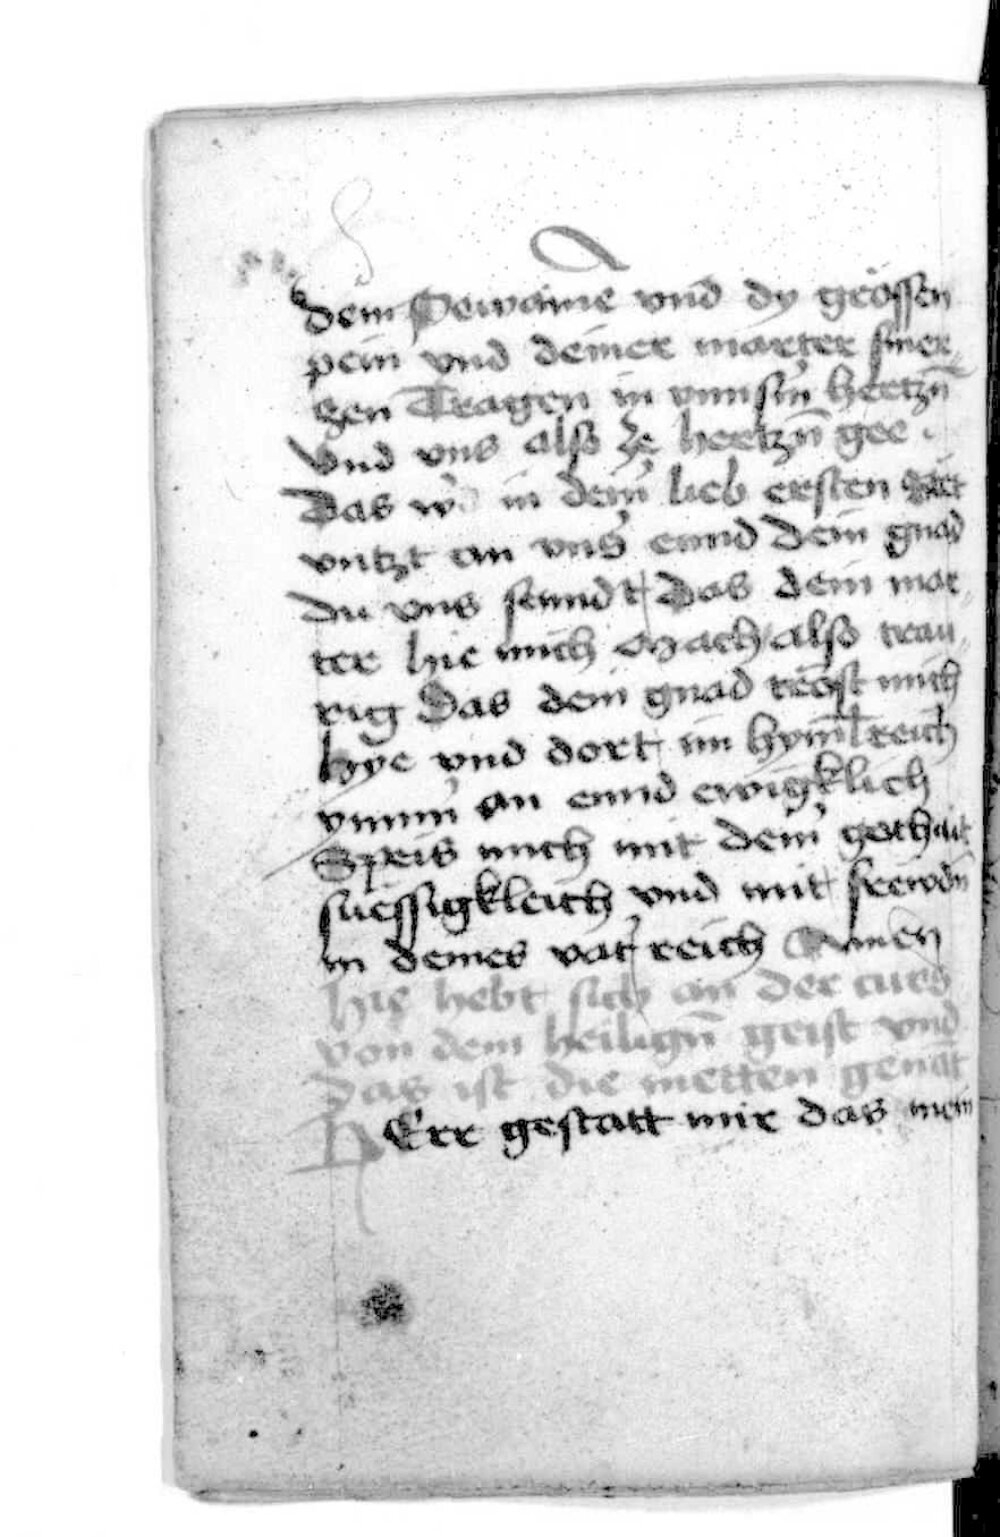 dein Gewaine vnd dy grossen
pein vnd deiner marter smer
czen Tragen in vnnsm̄ hertzn̄
Vnd vns also ze hertzn̄ gee .
Das w in dein̄ lieb ersten
vntzt an vns ennd Dein gnad
Du vns senndt Das dein mar
ter hie mich Mach also trau
rig Das dein gnad tröst mich
hye vnd dort im hymlreich
ymm̄ an ennd ewigklich
Speis mich mit dein̄ gothait
suessigkleich vnd mit frewdn̄
in deines vat̄ reich Amen
Hie hebt sich an der curs
von dem heilign̄ geist vnd
Das ist die metten genāt
HErr gestatt mir das mein